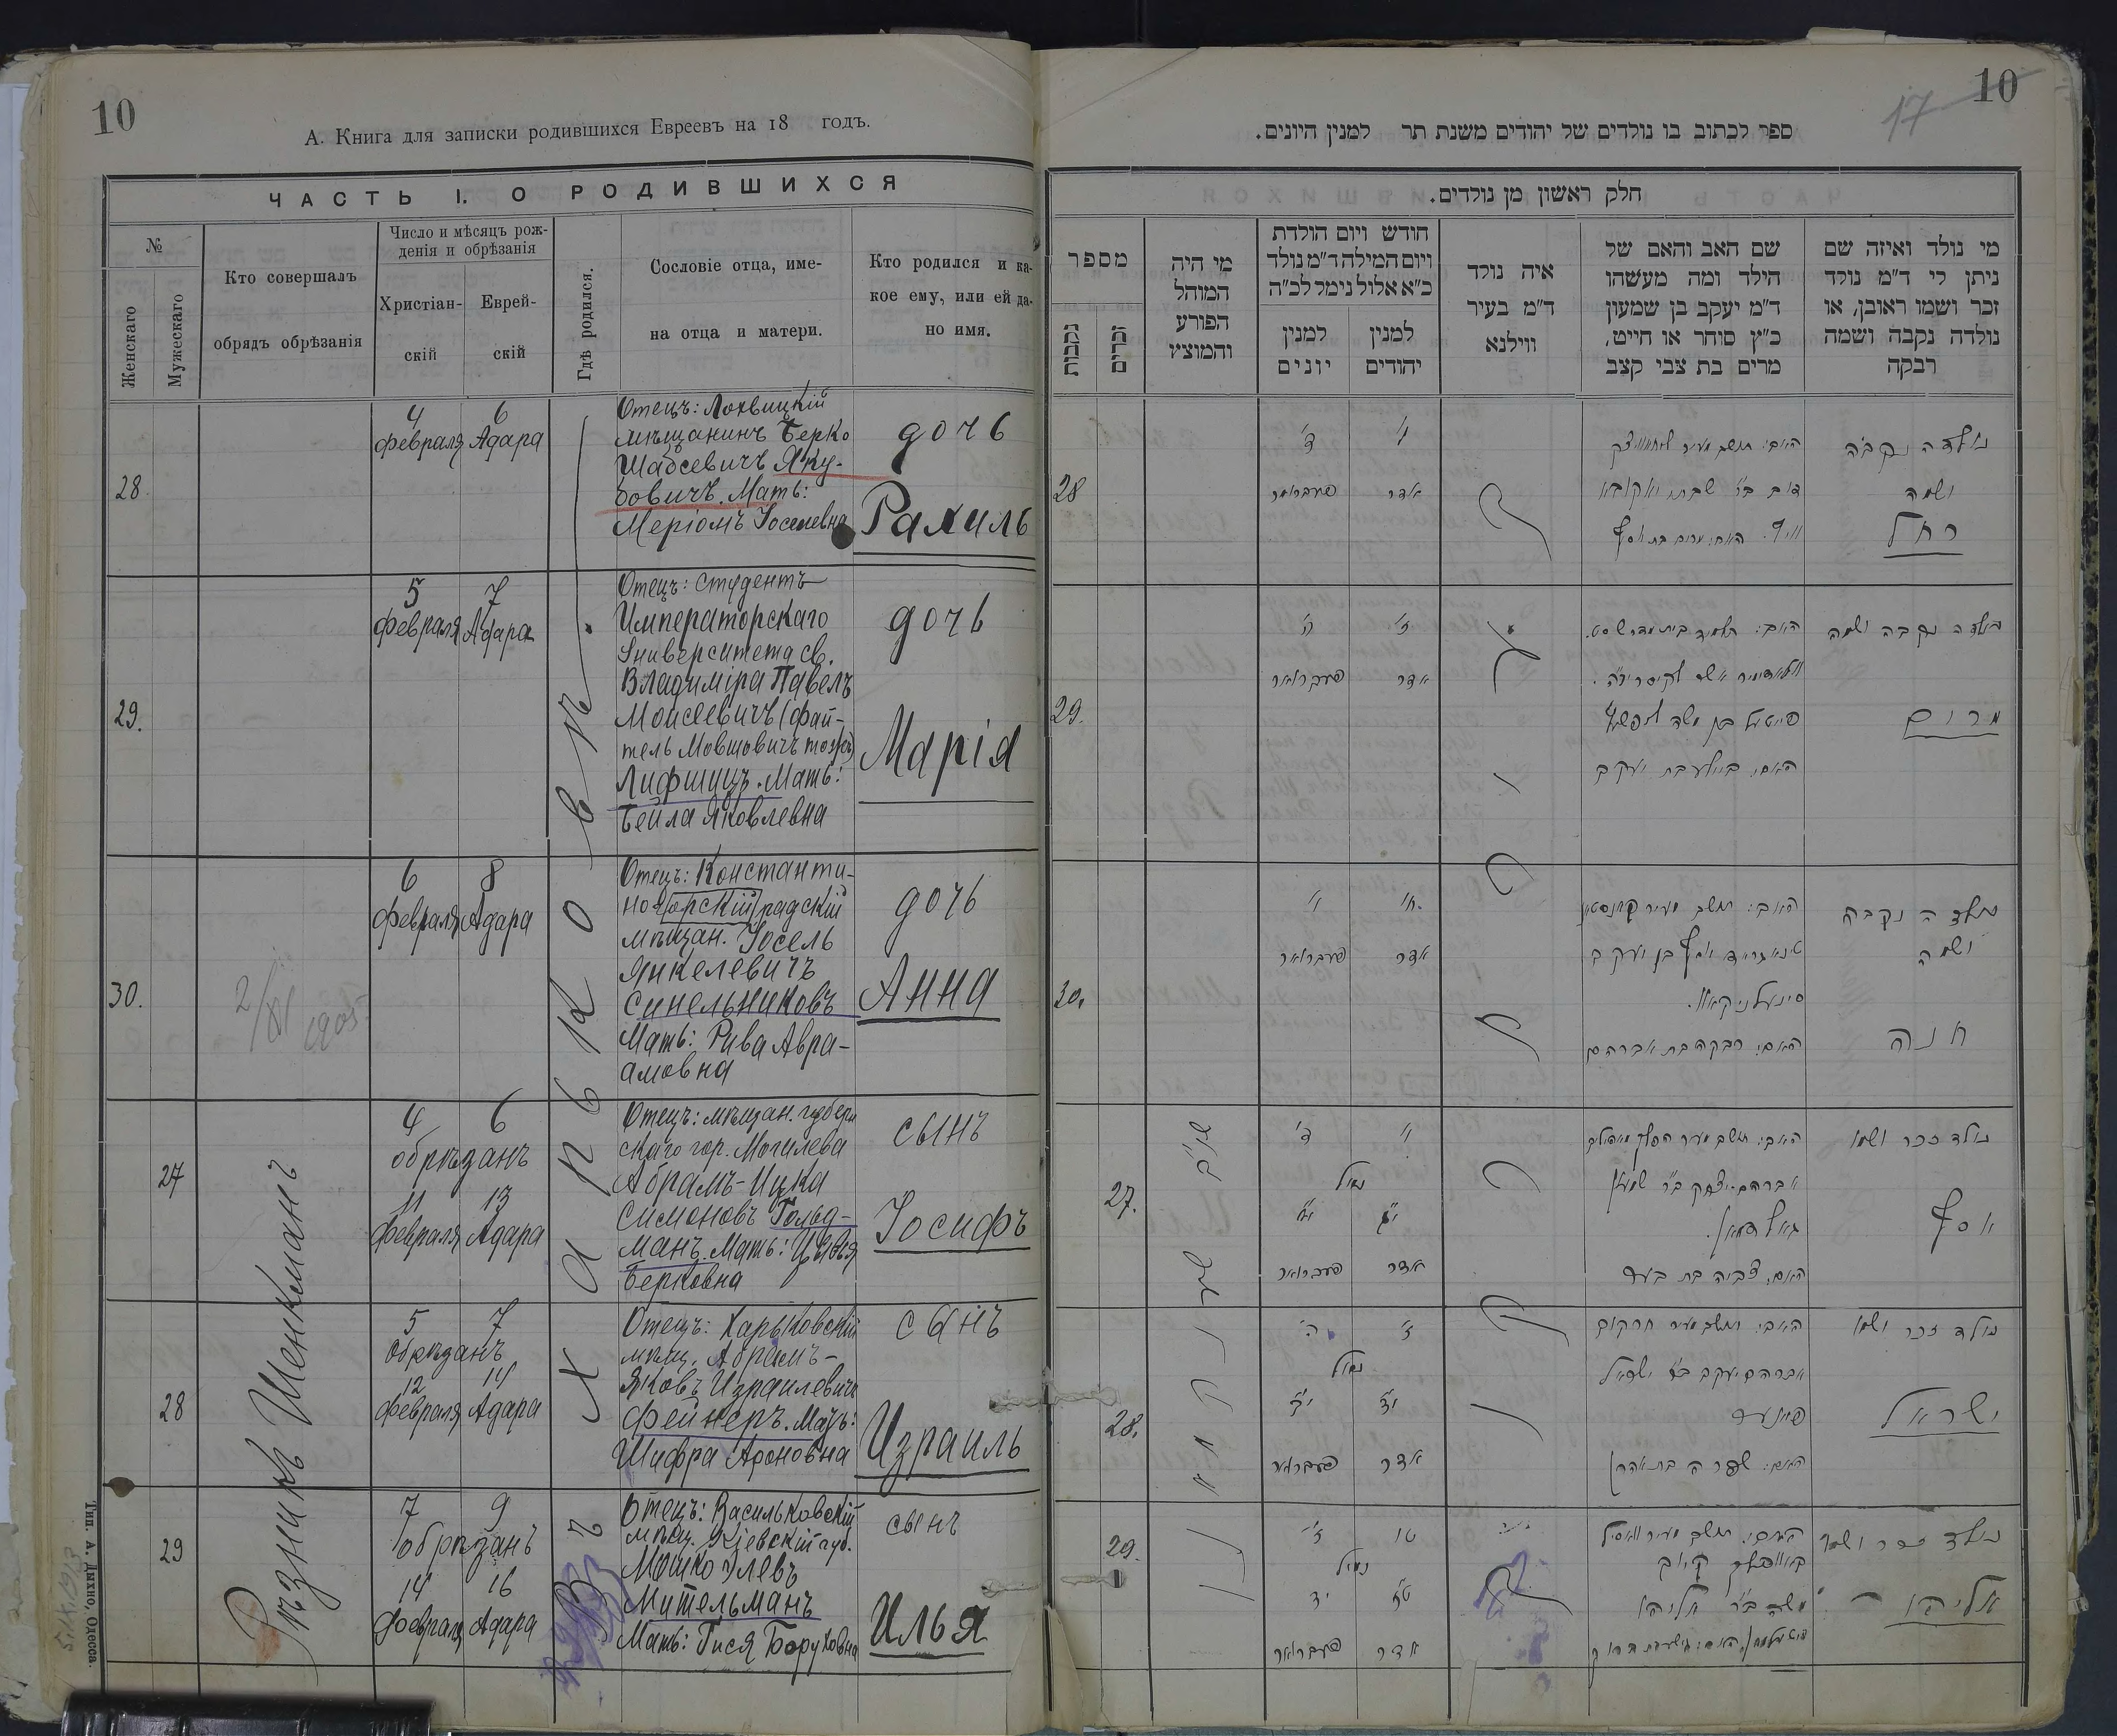 10
А. Книга для записки родившихся Евреевъ на 18 годъ.
ЧАСТЬ I. О РОДИВШИХСЯ
№
Женскаго
Мужескаго
Кто совершалъ
обрядъ обрѣзанія
Число и мѣсяцъ рож-
денія и обрѣзанія
Христіан-
скій
Еврей-
скій
Гдѣ родился.
Сословіе отца, име-
на отца и матери.
Кто родился и ка-
кое ему, или ей да-
но имя.
28
4 6
февраля Адара
Отецъ: Лохвицкій
мѣщанинъ Берко
Шабсевичъ Яку-
бовичъ. Мать:
Меріомъ Іоселевна
дочь
Рахиль
29.
5 7
февраля Адара
Отецъ: студентъ
Императорскаго
Университета св.
Владиміра Павелъ
Моисеевичъ (фай-
тель Мовшовичъ тожъ)
Лифшицъ. Мать:
Бейла Яковлевна
дочь
Марія
30.
2/XI 1905
6 8
февраля Адара
Отецъ: Константи-
ногорскій градскій
мѣщан. Іосель
Янкелевичъ
Синельниковъ
Мать: Рива Авра-
амовна
дочь
Анна
27
4 6
обрѣзанъ
11 13
февраля Адара
Отецъ: мѣщан. губерн
скаго гор. Могилева
Абрамъ-Ицка
Симоновъ Гольд-
манъ. Мать: Цивья
Берковна
сынъ
Іосифъ
28
5 7
обрѣзанъ
12 14
февраля Адара
Отецъ: Харьковскій
мѣщ. Абрамъ-
Яковъ Израилевичъ
Фейнеръ. Мать:
Шифра Ароновна
сынъ
Израиль
29
7 9
обрѣзанъ
14 16
февраля Адара
Отецъ: Васильковскій
мѣщ. Кіевскій губ.
Мошко Элевъ
Мительманъ
Мать: Гися Боруховна
сынъ
Илья
Рѣзникъ Шенкманъ
Харьковъ
Тип. А. Дыхно, Одесса.
10
17
ספר לכתוב בו נולדים של יהודים משנת תר למנין היונים.
חלק ראשון מן נולדים.
מספר
נקבות
זכרים
מי היה
המוהל
הפורע
והמוצץ
חודש ויום הולדת
ויום המילה ד"מ נולד
כ"א אלול נימל לכ"ה
למנין
יונים
למנין
יהודים
איה נולד
ד"מ בעיר
ווילנא
שם האב והאם של
הילד ומה מעשהו
ד"מ יעקב בן שמעון
כ"ץ סוחר או חייט,
מרים בת צבי קצב
מי נולד ואיזה שם
ניתן לי ד"מ נולד
זכר ושמו ראובן, או
נולדה נקבה ושמה
רבקה
28
ד' ו'
פעברואר אדר
נולדה נקבה
ושמה
רחל
29.
ה' ז'
פעברואר אדר
נולדה נקבה ושמה
מרים
30.
ו' ח'
פעברואר אדר
סינעלניקאוו.
האם: רבקה בת אברהם
נולדה נקבה
ושמה
חנה
27.
ד' ו'
נימול
י"א י"ג
פעברואר אדר
האם: צביה בת בער
נולד זכר ושמו
יוסף
28.
ה' ז'
נימול
י"ב י"ד
פעברואר אדר
אברהם יעקב ב"ר ישראל
פיינער
האם: שפרה בת אהרן
נולד זכר ושמו
ישראל
29.
ז' ט'
נימול
יד ט"ז
פעברואר אדר
משה ב"ר אליהו
נולד זכר ושמו
אליהו